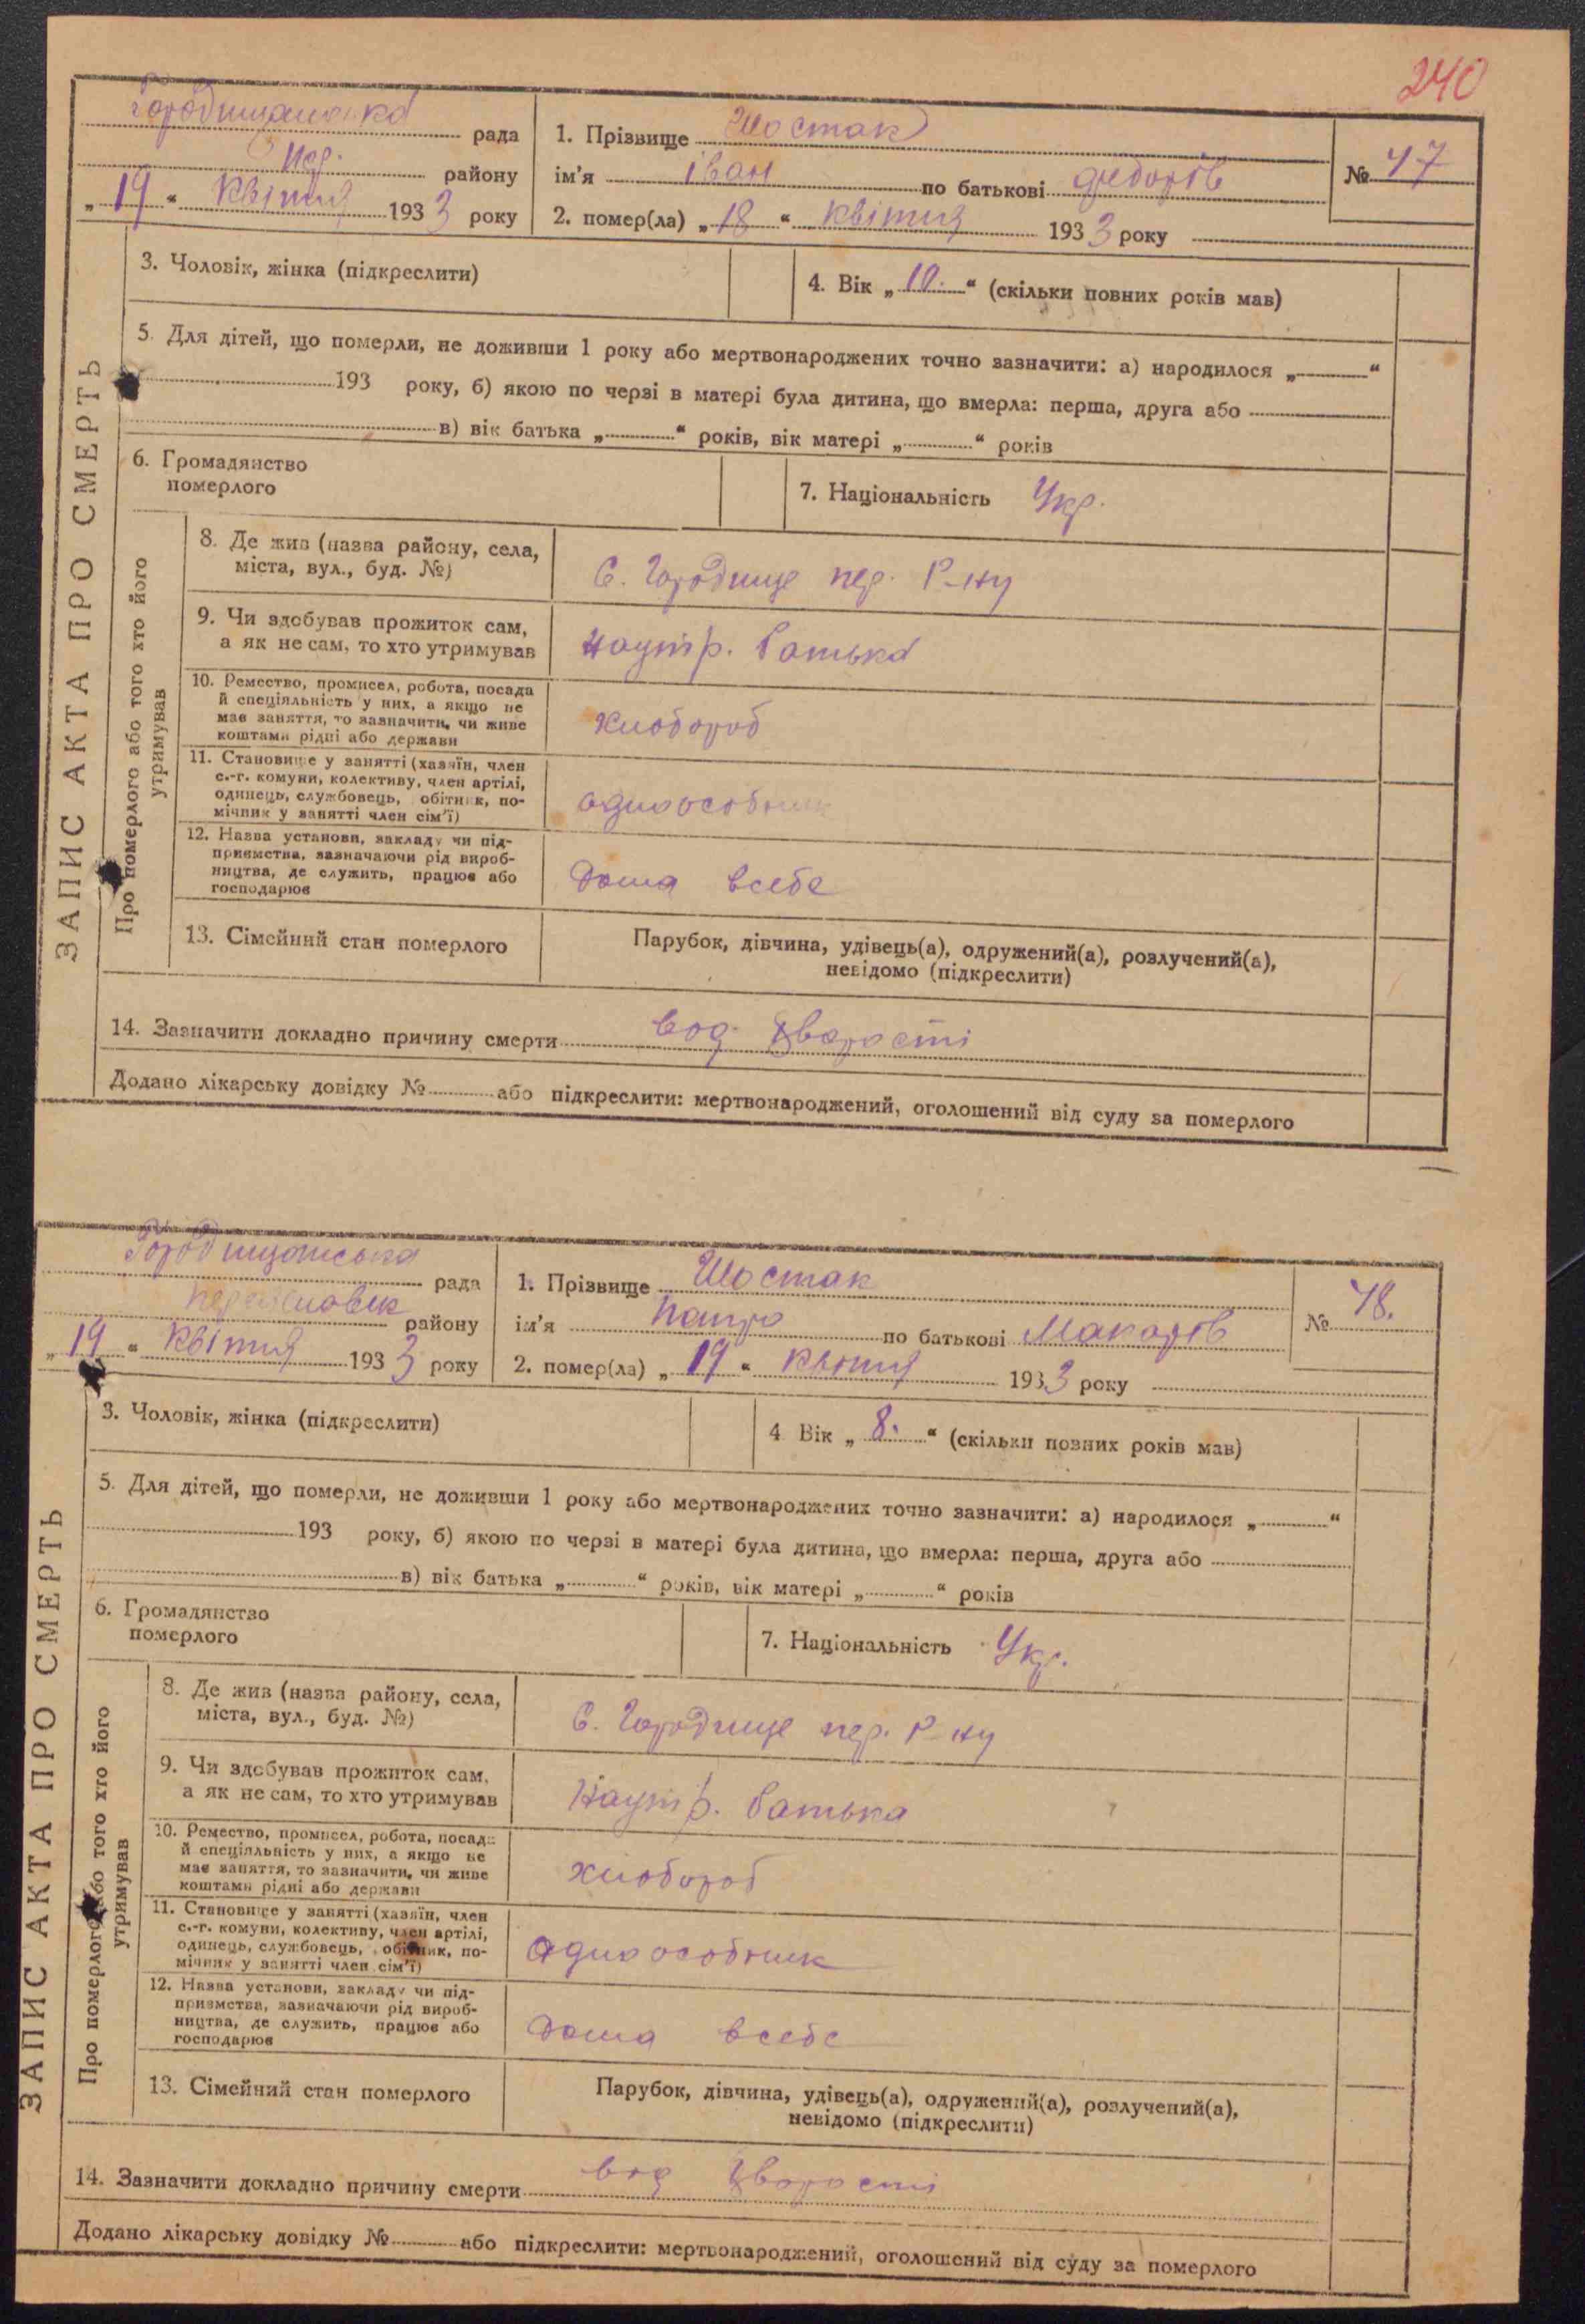 240
Городищанська рада
Пер. району
„19“ Квітня 1933 року
1. Прізвище Шостак
ім'я іван по батькові федорів
2. помер(ла) „18“ квітня 1933 року
№ 47
ЗАПИС АКТА ПРО СМЕРТЬ
3. Чоловік, жінка (підкреслити)
4. Вік „10.“ (скільки повних років мав)
5. Для дітей, що померли, не доживши 1 року або мертвонароджених точно зазначити: а) народилося „ “
193 року, б) якою по черзі в матері була дитина, що вмерла: перша, друга або
в) вік батька „ “ років, вік матері „ “ років
6. Громадянство
померлого
7. Національність Укр.
Про померлого або того хто його
утримував
8. Де жив (назва району, села,
міста, вул., буд. №)
С. Городище пер. Р-ну
9. Чи здобував прожиток сам,
а як не сам, то хто утримував
Наутр. батька
10. Ремество, промисел, робота, посада
й спеціяльність у них, а якщо не
має заняття, то зазначити, чи живе
коштами рідні або держави
хлібороб
11. Становище у занятті (хазяїн, член
с.-г. комуни, колективу, член артілі,
одинець, службовець, обітник, по-
мічник у занятті член сім'ї)
одноособник
12. Назва установи, закладу чи під-
приємства, зазначаючи рід вироб-
ництва, де служить, працює або
господарює
Дома всебе
13. Сімейний стан померлого
Парубок, дівчина, удівець(а), одружений(а), розлучений(а),
невідомо (підкреслити)
14. Зазначити докладно причину смерти вод хворості
Додано лікарську довідку № або підкреслити: мертвонароджений, оголошений від суду за померлого
Городищанська рада
району
„19“ Квітня 1933 року
1. Прізвище Шостак
ім'я Петро по батькові Макарів
2. помер(ла) „19“ Квітня 1933 року
№ 48.
ЗАПИС АКТА ПРО СМЕРТЬ
3. Чоловік, жінка (підкреслити)
4 Вік „8.“ (скільки повних років мав)
5. Для дітей, що померли, не доживши 1 року або мертвонароджених точно зазначити: а) народилося „ “
193 року, б) якою по черзі в матері була дитина, що вмерла: перша, друга або
в) вік батька „ “ років, вік матері „ “ років
6. Громадянство
померлого
7. Національність Укр.
Про померлого або того хто його
утримував
8. Де жив (назва району, села,
міста, вул., буд. №)
С. Городище пер. Р-ну
9. Чи здобував прожиток сам,
а як не сам, то хто утримував
Наутр. батька
10. Ремество, промисел, робота, посада
й спеціяльність у них, а якщо не
має заняття, то зазначити, чи живе
коштами рідні або держави
хлібороб
11. Становище у занятті (хазяїн, член
с.-г. комуни, колективу, член артілі,
одинець, службовець, обітник, по-
мічник у занятті член сім'ї)
одноособник
12. Назва установи, закладу чи під-
приємства, зазначаючи рід вироб-
ництва, де служить, працює або
господарює
Дома всебе
13. Сімейний стан померлого
Парубок, дівчина, удівець(а), одружений(а), розлучений(а),
невідомо (підкреслити)
14. Зазначити докладно причину смерти вод хворості
Додано лікарську довідку № або підкреслити: мертвонароджений, оголошений від суду за померлого